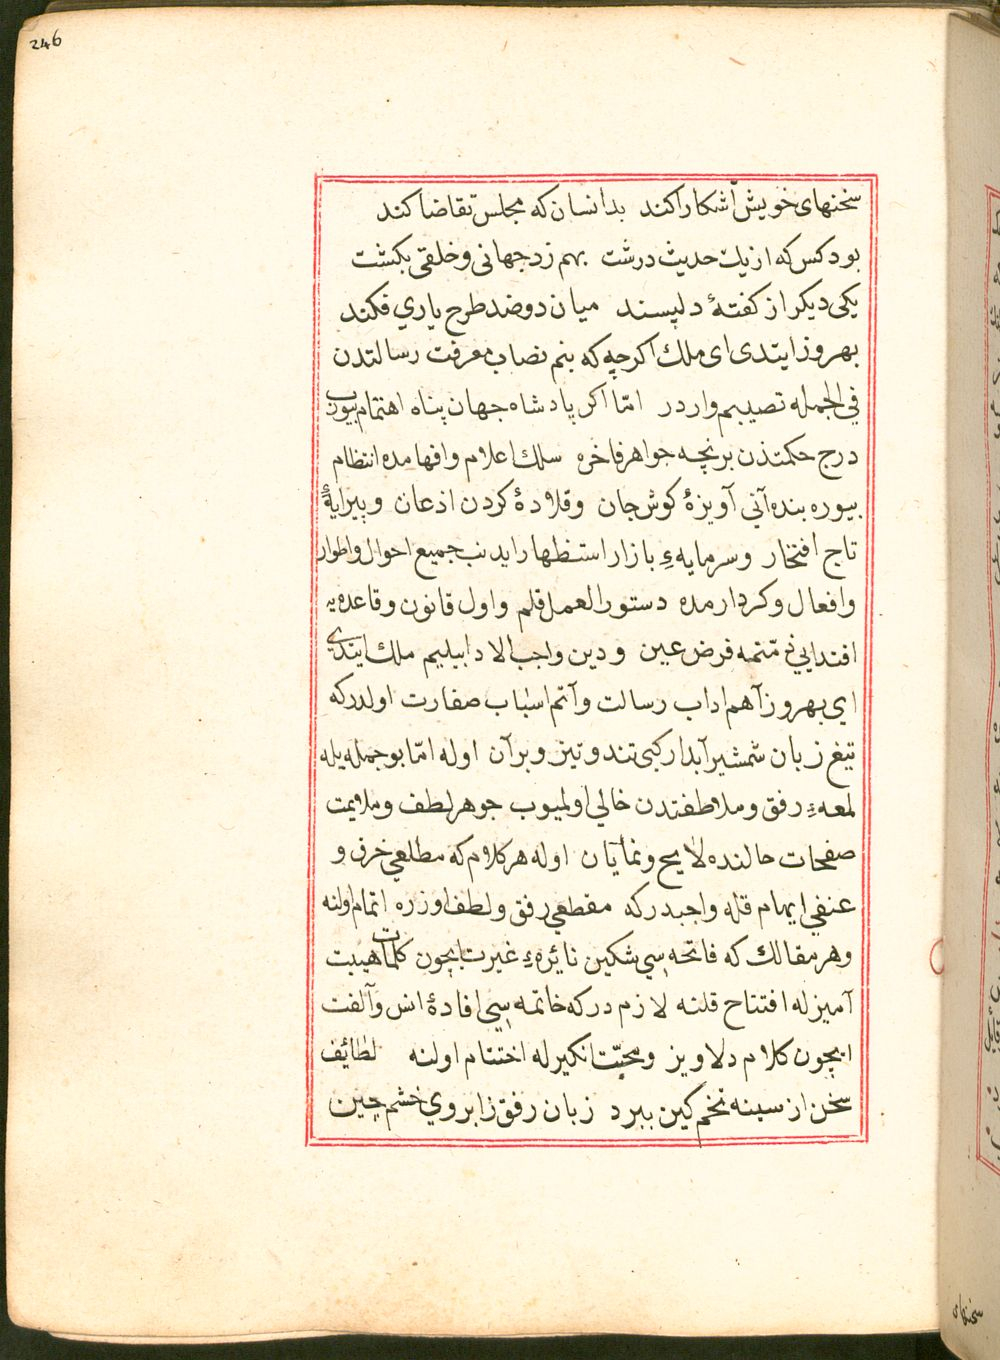 246
سخنهای خویش آشکارا کند بدانسان که مجلس تقاضا کند
بود کس که از یك حدیث درشت بهم زد جهانی و خلقی بکشت
یکی دیکر از کفتهٔ دلپسند میان دو ضد طرح یاري فکند
بهروز ایتدی ای ملك اکرچه که بنم نصاب معرفت رسالتدن
في الجمله نصیبم واردر امّا اکر پادشاه جهان پناه اهتمام بیورب
درج حکمتدن برنچه جواهر فاخره سلك اعلام وافهامده انتظام
بیوره بنده آني آویزهٔ کوش جان وقلادهٔ کردن اذعان وپیرایهٔ
تاج افتخار وسرمایهءِ بازار استظهار ایدنب جمیع احوال واطوار
وافعال وکردارمده دستور العمل قلم واول قانون وقاعده یه
اقتدایي ذمّتمه فرض عین ودین واجب الادا بیلیم ملك ایتدي
اي بهروز آهم اداب رسالت وآتم اسباب صفارت اولدر که
تیغ زبان شمشیر آبدار کبی تند وتیز وبرآن اوله امّا بو جمله یله
لمعهءِ رفق وملاطفتدن خالي اولمیوب جوهر لطف وملایمت
صفحات حالنده لایح ونمایان اوله هر کلام که مطلعي خرق و
عنفي ایهام قله واجبدر که مقطعي رفق ولطف اوزره اتمام اولنه
وهر مقالك که فاتحه سي تشکین نائرهءِ غیرت ایچون کلمات هیبت
آمیزله افتتاح قلنه لازم در که خاتمه سي افادهٔ انس وآلفت
ایچون کلام دلاویز ومحبّت انکیزله اختتام اولنه لطائف
سخن از سینه تخم کین ببرد زبان رفق ز ابروي خشم چین
سخنهای